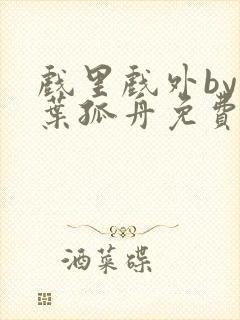 戲里戲外by
葉孤舟免費
酒菜碟